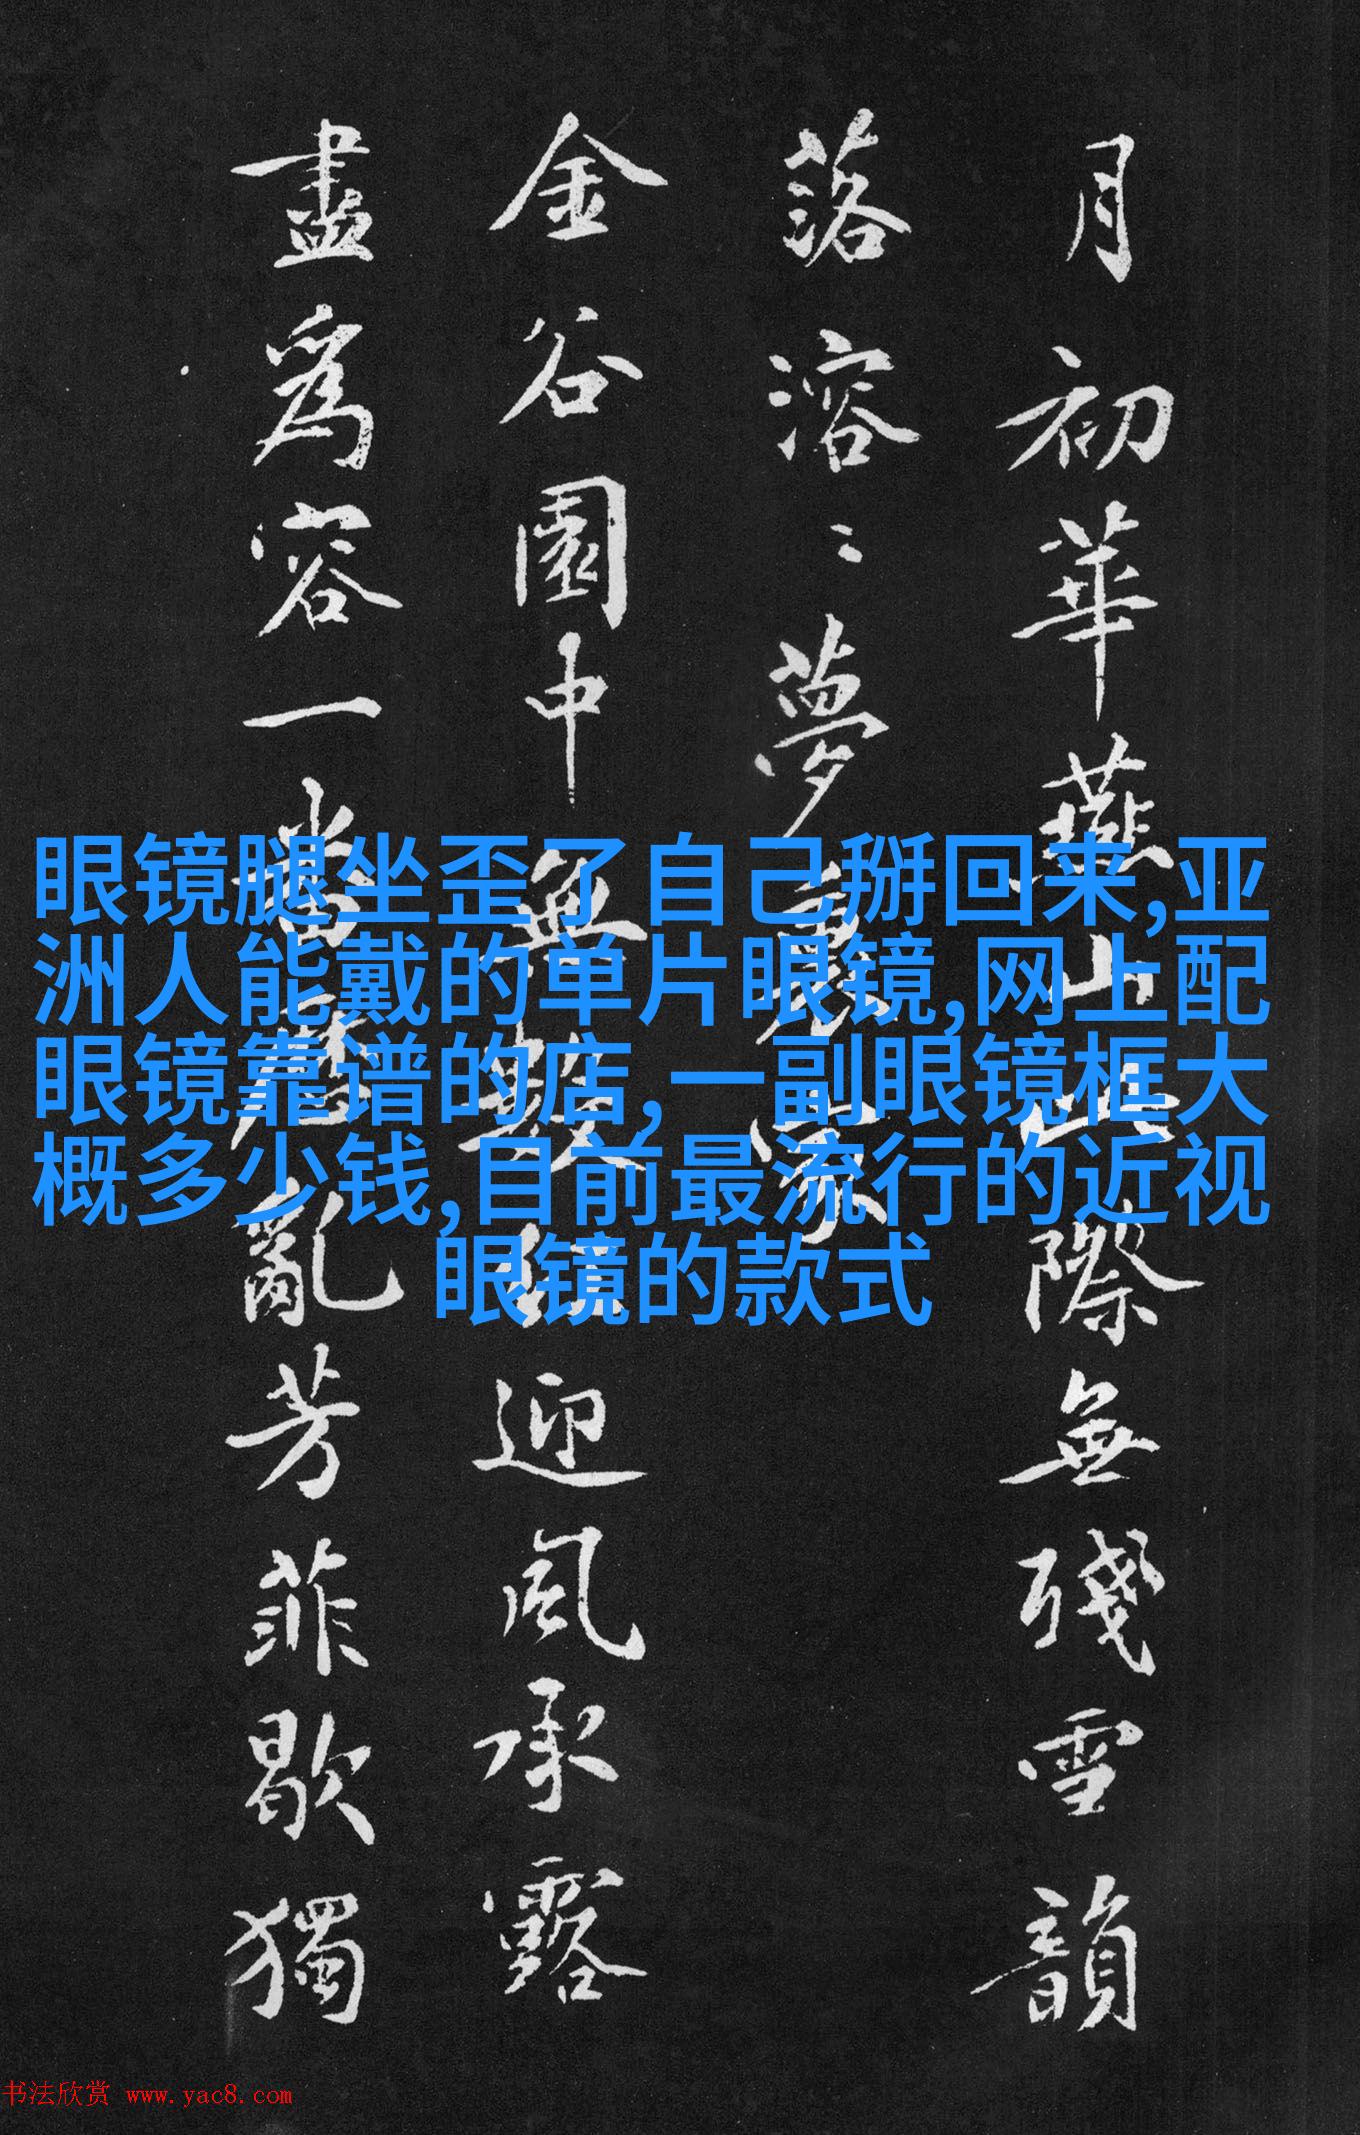 月初華燕山此際無殘雪韻
落溶〻夢裏家
金谷園中無數紅迎風承露
盡爲容一番歷亂芳菲歇獨
眼镜腿坐歪了自己掰回来,亚
洲人能戴的单片眼镜,网上配
眼镜靠谱的店,一副眼镜框大
概多少钱,目前最流行的近视
眼镜的款式
书法欣赏 www.yac8.com